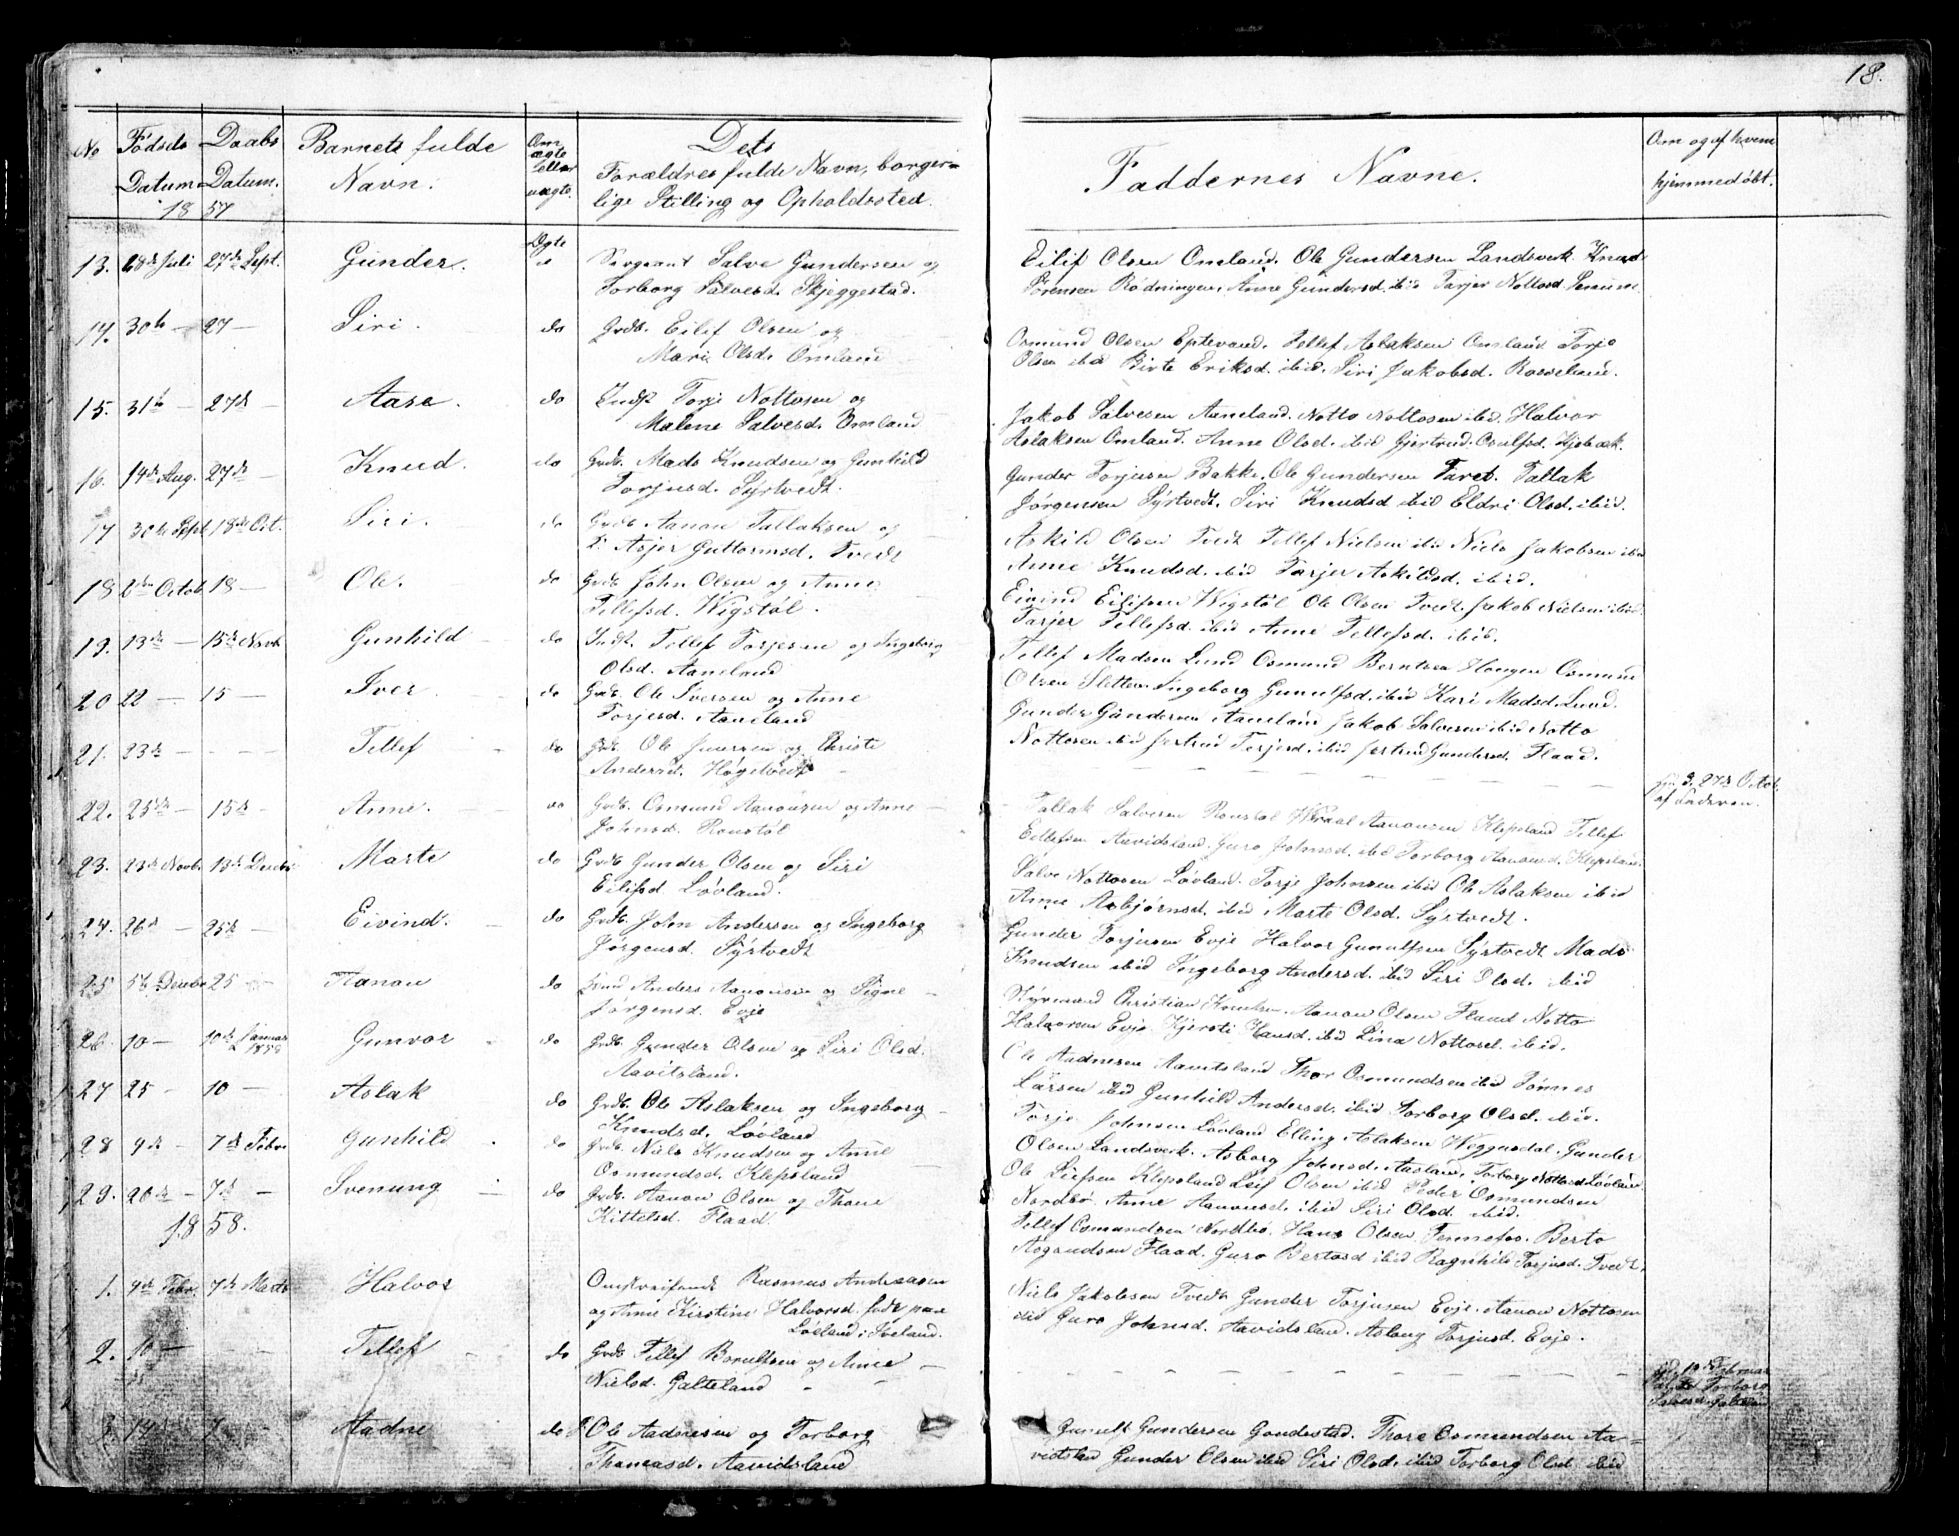 18.
No Fødsels Datum Daabs Datum. Barnets fulde Navn. Om ægte eller uægte. Dets Forældres fulde Navn, borgerlige Stilling og Opholdssted. Faddernes Navne. Om og af hvem hjemmedøbt.
1857
13. 28de Juli 27de Sept. Gunder. Ægte Sergeant Salve Gundersen og
Torborg Salvesd. Skjeggestad.
Eilif Olsen Omland. Ole Gundersen Landsverk Knud
Sørensen Rødningen, Anne Gundersd. ibid Tarjer Nottosd.
14. 30te — 27 — Siri. do Grdb. Eilef Olsen og
Mari Olsd. Omland
Osmund Olsen Eptevand. Tellef Aslaksen Omland Torje
Olsen ibid Birte Eriksd. ibid. Siri Jakobsd. Rosseland.
15. 31te — 27de — Aase. do Indst Torje Nottosen og
Malene Salvesd. Omland
Jakob Salvesen Aaneland. Notto Nottosen ibid. Halvor
Aslaksen Omland. Anne Olsd. ibid Gjertrud Osulfsd. Kjebæk.
16. 14de Aug. 27de — Knud. do Grdb. Mads Knudsen og Gunhild
Torjusd. Syrtvedt.
Gunder Torjusen Bakke. Ole Gundersen Faret. Tallak
Jørgensen Syrtvedt. Siri Knudsd ibid Eldri Olsd. ibid.
17 30te Sept. 18de Oct. Siri. do Grdb. Aanon Tallaksen og
Asjer Guttormsd. Tvedt
Askild Olsen Tvedt Tellef Nielsen ibid Niels Jakobsen ibid
Anne Knudsd. ibid Tarjer Askildsd. ibid.
18 6te Octob 18 — Ole. do Grdb. John Olsen og Anne
Tellefsd. Wigstøl.
Eivind Eilifsen Wigstøl Ole Olsen Tvedt. Jakob Nielsen ibid
Tarjer Tellefsd. ibid Anne Tellefsd. ibid.
19. 13de — 15de Novb Gunhild do Indst. Tellef Torjesen og Ingeborg
Olsd. Aaneland
Tellef Madsen Lund Osmund Berntsen Haugen Osmund
Olsen Sletten. Ingeborg Gunulfsd. ibid Kari Madsd. Lund.
20 22 — 15 — Iver. do Grdb. Ole Iversen og Anne
Torjesd. Aaneland
Gunder Gundersen Aaneland Jakob Salvesen ibid Notto
Nottosen ibid Jertrud Torjesd. ibid Jertrud Gundersd. Flaad.
21. 23de — — — Tellef do Grdb. Ole Jenssen og Christi
Andersd. Høgetvedt
27de Octob.
af Faderen.
22. 25de — 15de — Anne. do Grdb. Osmund Aanonsen og Anne
Johnsd. Ronstøl
Tallak Salvesen Ronstøl Wraal Aanonsen Klepsland Tellef
Eilefsen Aavidsland. Guro Johnsd. ibid Torborg Aanonsd. Klepsland
23. 23de Novb. 13de Decbr Marte do Grdb Gunder Olsen og Siri
Eilifsd Løvland.
Salve Nottosen Løvland. Torje Johnsen ibid Ole Aslaksen ibid
Anne Asbjørnsd. ibid Marte Olsd. Syrtvedt.
24. 26de — 25de — Eivind. do Grdb. John Andersen og Ingeborg
Jørgensd. Syrtvedt
Gunder Torjusen Evje Halvor Gunulfsen Syrtvedt Mads
Knudsen ibid Ingeborg Andersd. ibid Siri Olsd. ibid
25 5te Decbr 25 — Aanon do Anders Aanonsen og Signe
Jørgensd. Evje
Christian Knudsen. Aanon Olsen Flaad Notto
Halvorsen Evje Kjersti Hansd. ibid Lina Nottosd. ibid.
26. 10 — 10de Januar 1858 Gunvor do Grdb. Gunder Olsen og Siri Olsd.
Aavitsland.
Ole Aadnesen Aavitsland Thor Osmundsen ibid Tønnes
Larsen ibid Gunhild Andersd. ibid Torborg Olsd. ibid.
27 25 — 10 — Aslak do Grdb. Ole Aslaksen og Ingeborg
Knudsd. Løvland
Torje Johnsen Løvland Elling Aslaksen Weggusdal. Gunder
Olsen Landsverk. Asborg Johnsd. Aasland. Torborg Nottosd Løvland
28 9de — 7de Febr Gunhild do Grdb. Niels Knudsen og Anne
Osmundsd. Klepsland
Ole Leifsen Klepsland Leif Olsen ibid Peder Osmundsen
Nordbø Anne Aanonsd. ibid Siri Olsd. ibid.
29. 20de — 7de — Svenung do Grdb. Aanon Olsen og Thone
Kittelsd. Flaad.
Tellef Osmundsen Nordbø. Hans Olsen Fennefos. Berto
Asgaudsen Flaad. Guro Bertosd ibid Ragnhild Torjusd. Tvedt.
1858.
1. 9de Febr. 7de Marts Halvor Omstreifende Rasmus Andreasen
og Anne Kirstine Halvorsd. født paa
Løvland i Iveland.
Niels Jakobsen Tvedt Gunder Torjusen Evje. Aanon Nottosen
ibid Guro Johnsd. Aavidsland. Aslaug Torjusd. Evje.
2. 10 — Tellef do Grdb Tellef Berulfsen og Anne
Nielsd. Galteland
10de Februar
Torborg
Salvesd. Galteland
3. 14de 7 — Aadne do Ole Aadnesen og Torborg
Thomasd. Aavidsland
Gunulf Gundersen Gondestad. Thore Osmundsen Aa-
vidsland Gunder Olsen ibid Siri Olsd. ibid Torborg Olsd ibid